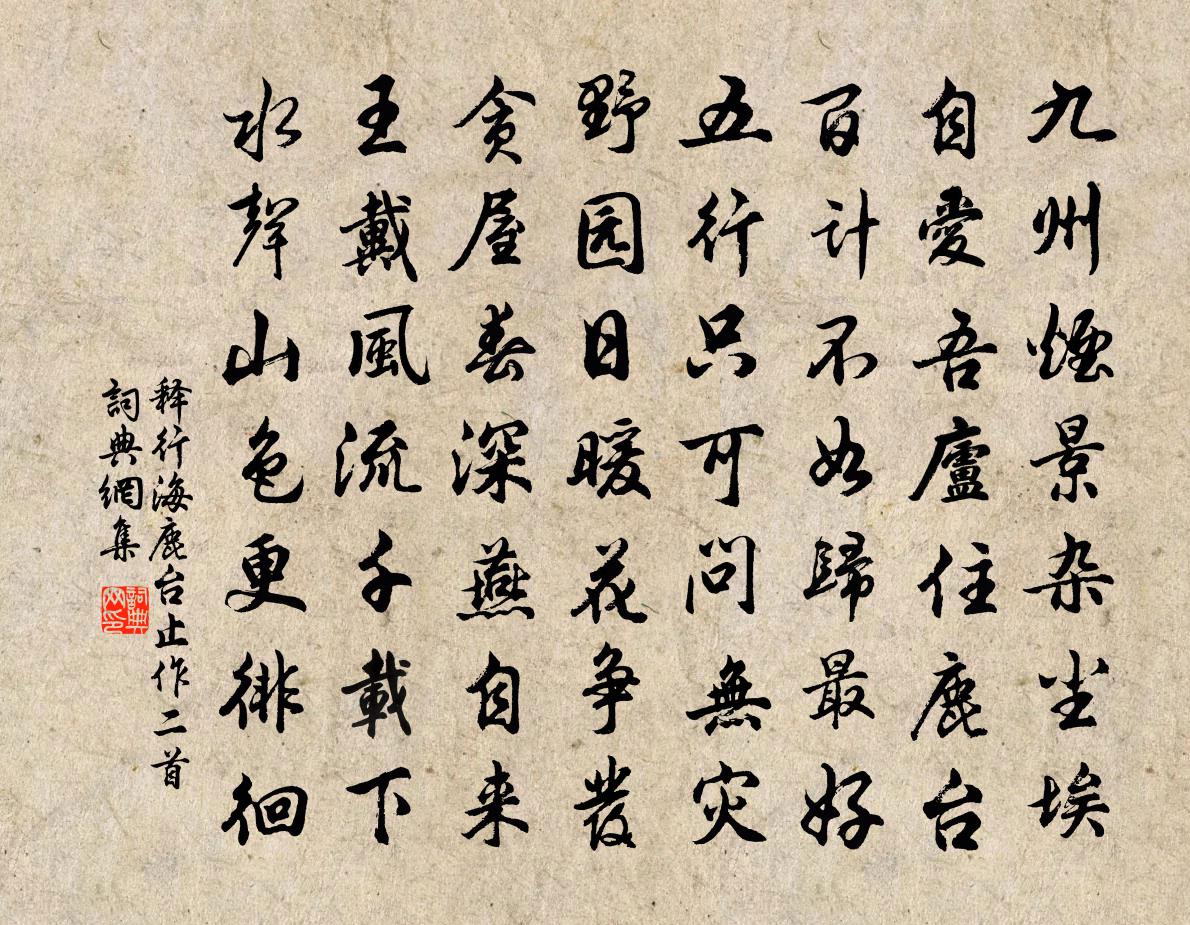 九州煙景杂尘埃
自愛吾廬住鹿台
百计不如歸最好
五行只可问無灾
野园日暖花争發
贪屋春深燕自来
王戴風流千載下
水聲山色更徘徊
释行海鹿台止作二首
詞典網集
詞典
网印